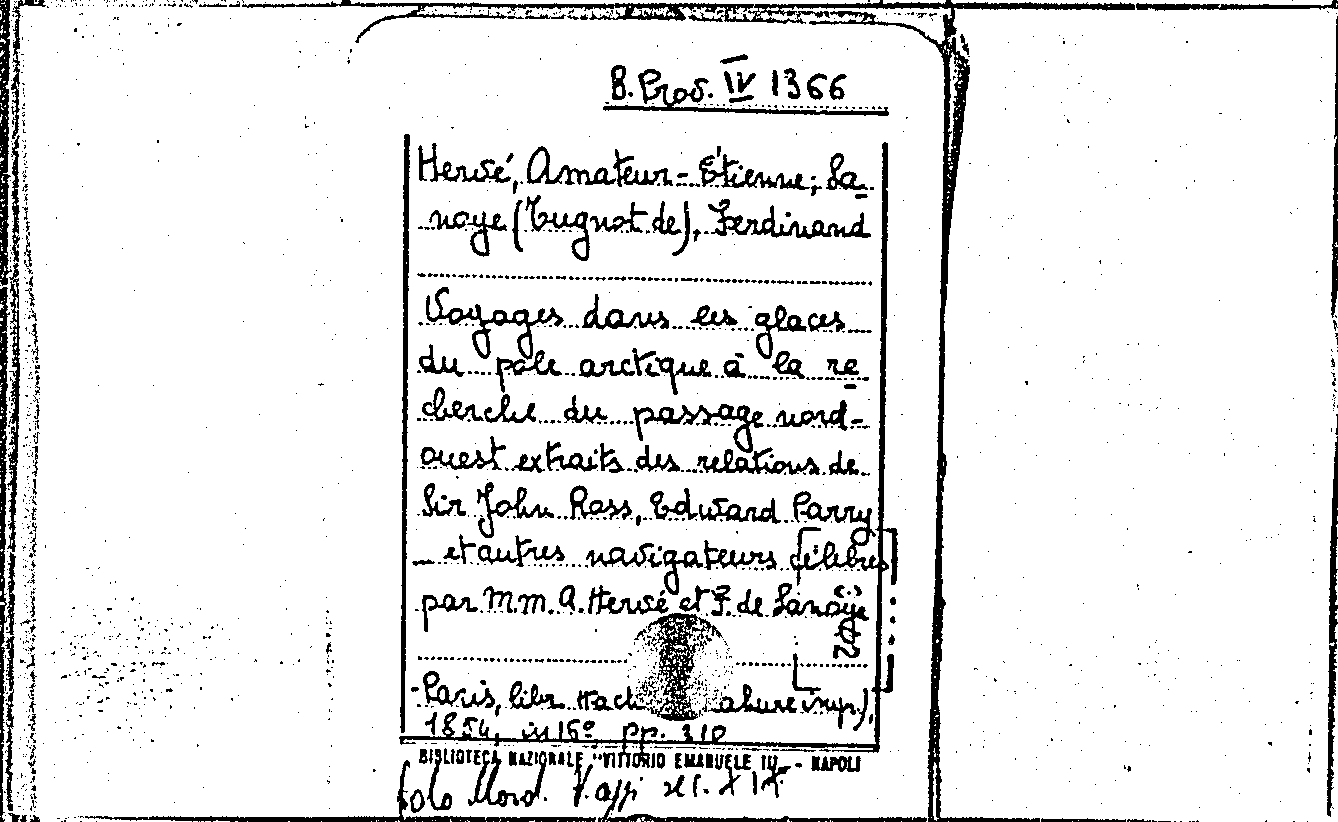 B. Prov. IV 1366
Hervé, Amateur-Étienne; La=
noye (Tugnot de), Ferdinand
Voyages dans les glaces
du pole arctique à la re=
cherche du passage nord-
ouest extraits des relations de
Sir John Ross, Edward Parry
et autres navigateurs célèbres
par M.M. A. Hervé et F. de Lanoye
-Paris, libr. Hach ahure imp.),
1854, in 16° pp. 310
BIBLIOTECA NAZIONALE "VITTORIO EMANUELE III" - NAPOLI
Polo Nord.